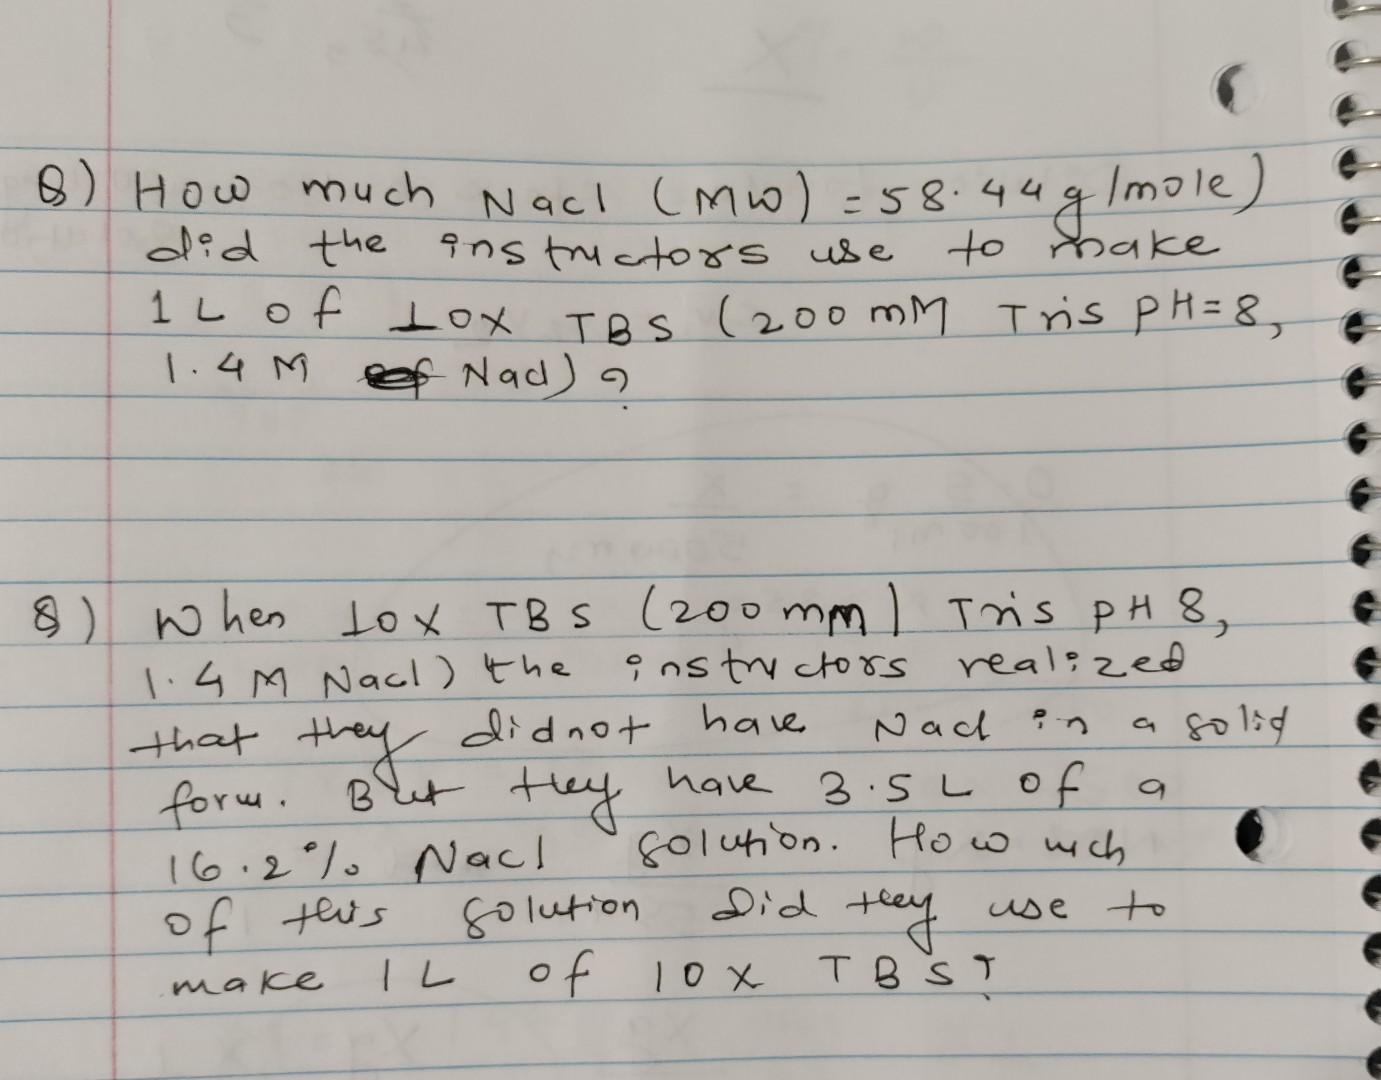 Q) How much Nacl (MW) = 58.44 g/mole)
did the instructors use to make
1 L of 10x TBS (200 mM Tris PH=8,
1.4 M Nacl) ?
Q) When 10x TBS (200 mm) Tris pH 8,
1.4 M Nacl) the instructors realized
that they didnot have Nacl in a solid
form. But they have 3.5 L of a
16.2% Nacl solution. How uch
of this solution Did they use to
make 1 L of 10 x TBS?